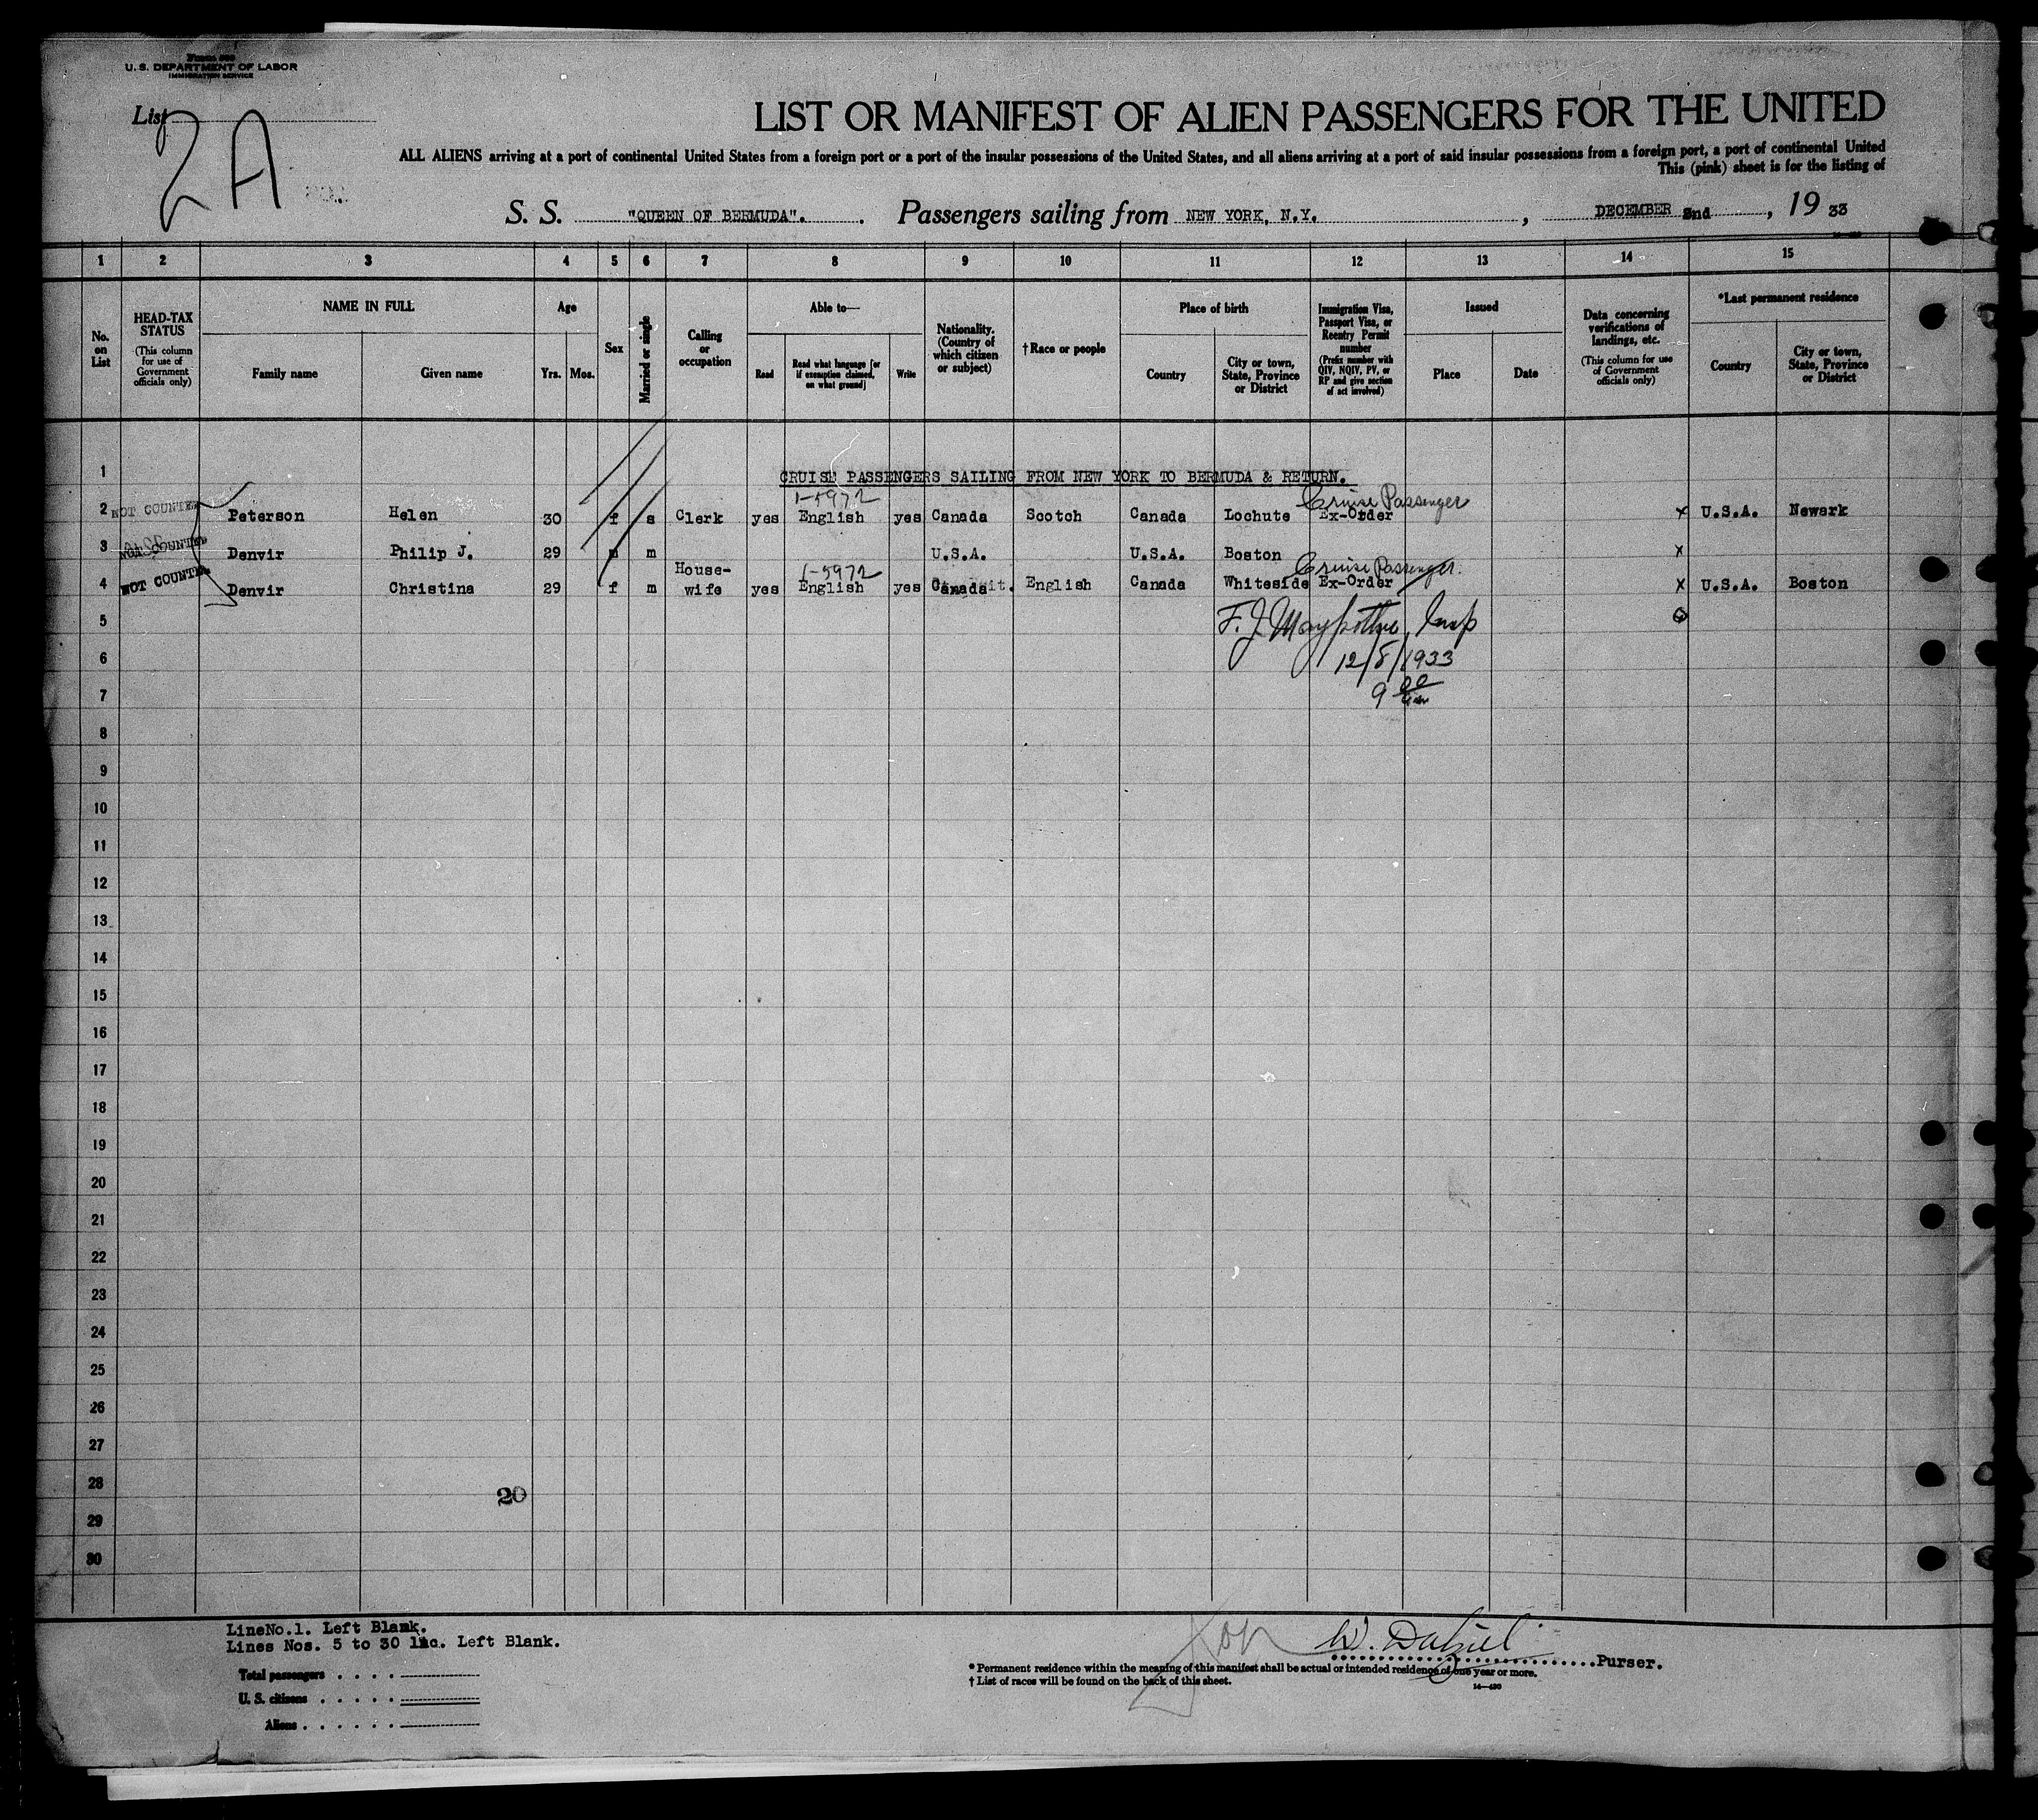 Form 500
U. S. DEPARTMENT OF LABOR
IMMIGRATION SERVICE
List 2A
LIST OR MANIFEST OF ALIEN PASSENGERS FOR THE UNITED
ALL ALIENS arriving at a port of continental United States from a foreign port or a port of the insular possessions of the United States, and all aliens arriving at a port of said insular possessions from a foreign port, a port of continental United
This (pink) sheet is for the listing of
S. S. "QUEEN OF BERMUDA". Passengers sailing from NEW YORK, N.Y., DECEMBER 2nd, 19 33
1 2 3 4 5 6 7 8 9 10 11 12 13 14 15
No. on List
HEAD-TAX STATUS
(This column for use of Government officials only)
NAME IN FULL
Family name
Given name
Age
Yrs. Mos.
Sex
Married or single
Calling or occupation
Able to—
Read
Read what language [or if exemption claimed, on what ground]
Write
Nationality. (Country of which citizen or subject)
†Race or people
Place of birth
Country
City or town, State, Province or District
Immigration Visa, Passport Visa, or Reentry Permit number
(Prefix number with QIV, NQIV, PV, or RP and give section of act involved)
Issued
Place
Date
Data concerning verifications of landings, etc.
(This column for use of Government officials only)
*Last permanent residence
Country
City or town, State, Province or District
1 CRUISE PASSENGERS SAILING FROM NEW YORK TO BERMUDA & RETURN.
1-5972 Cruise Passenger
2 NOT COUNTED Peterson Helen 30 f s Clerk yes English yes Canada Scotch Canada Lochute Ex-Order x U.S.A. Newark
3 NOT COUNTED Denvir Philip J. 29 m m U.S.A. U.S.A. Boston x
House- 1-5972 Cruise Passenger.
4 NOT COUNTED Denvir Christina 29 f m wife yes English yes Canada English Canada Whiteside Ex-Order x U.S.A. Boston
5 F. J. Insp
6 12/8/1933
7 9 00
8
9
10
11
12
13
14
15
16
17
18
19
20
21
22
23
24
25
26
27
28 20
29
30
LineNo.1. Left Blank.
Lines Nos. 5 to 30 inc. Left Blank.
Total passengers
U. S. citizens
Aliens
W. Purser.
* Permanent residence within the meaning of this manifest shall be actual or intended residence of one year or more.
† List of races will be found on the back of this sheet.
14—430